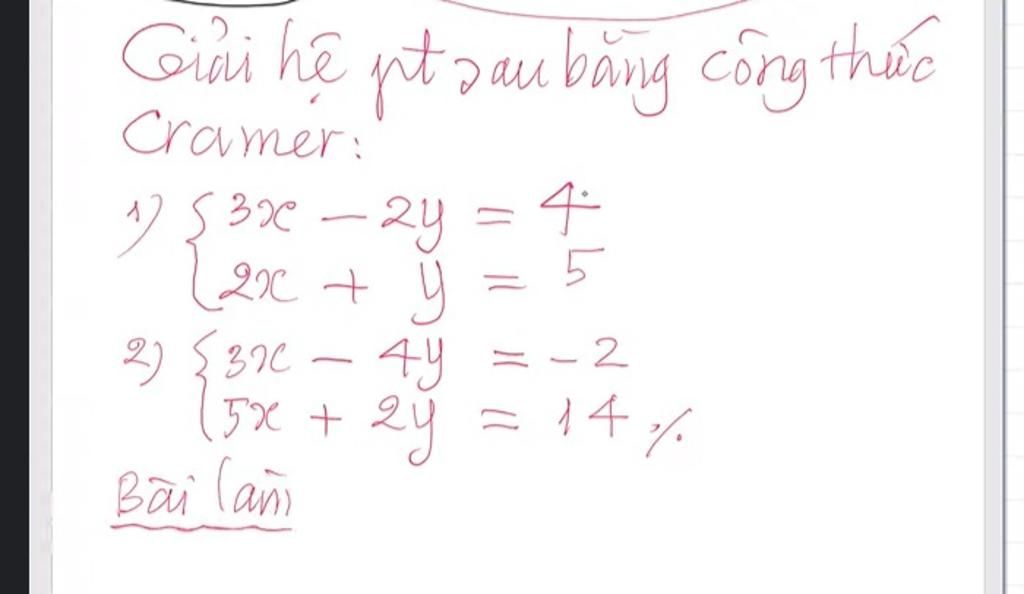 Giải hệ pt sau bằng công thức
Cramer:
1) { 3x - 2y = 4
2x + y = 5
2) { 3x - 4y = -2
5x + 2y = 14 ./.
Bài làm